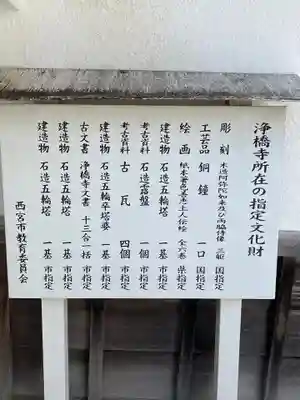 浄橋寺所在の指定文化財
彫刻 木造阿弥陀如来及び両脇侍像 三躯 国指定
工芸品 銅鐘 一口 国指定
絵画 紙本著色善恵上人伝絵 全六巻 県指定
建造物 石造五輪塔 一基 市指定
考古資料 石造露盤 一個 市指定
考古資料 古瓦 四個 市指定
建造物 石造五輪卒塔婆 一基 市指定
古文書 浄橋寺文書 十三合一括 市指定
建造物 石造五輪塔 一基 市指定
建造物 石造五輪塔 一基 市指定
西宮市教育委員会